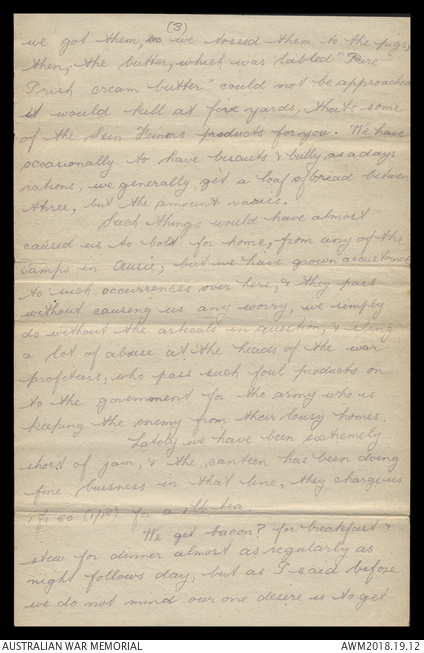 (3)
we got them, so we tossed them to the pigs,
then, the butter, which was labled "Pure
Irish cream butter" could not be approached
it would kill at five yards, thats some
of the Sein Feiners products for you. We have
occasionally to have biscuits & bully, as a days
rations, we generally get a loaf of bread between
three, but the amount varies.
Such things would have almost
caused us to bolt for home, from any of the
camps in Aussie, but we have grown accustomed
to such occurrences over here, & they pass
without causing us any worry, we simply
do without the articals in question, & sling
a lot of abuse at the heads of the war
profiteers, who pass such foul products on
to the government for the army who is
keeping the enemy from their lousy homes.
Lately we have been extremely
short of jam, & the canteen has been doing
fine buisness in that line, they charge us
1 Fr 50 (1/3) for a 1 lb tin.
We get bacon? for breakfast &
stew for dinner almost as regularly as
night follows day, but as I said before
we do not mind our one desire is to get
AUSTRALIAN WAR MEMORIAL
AWM2018.19.12